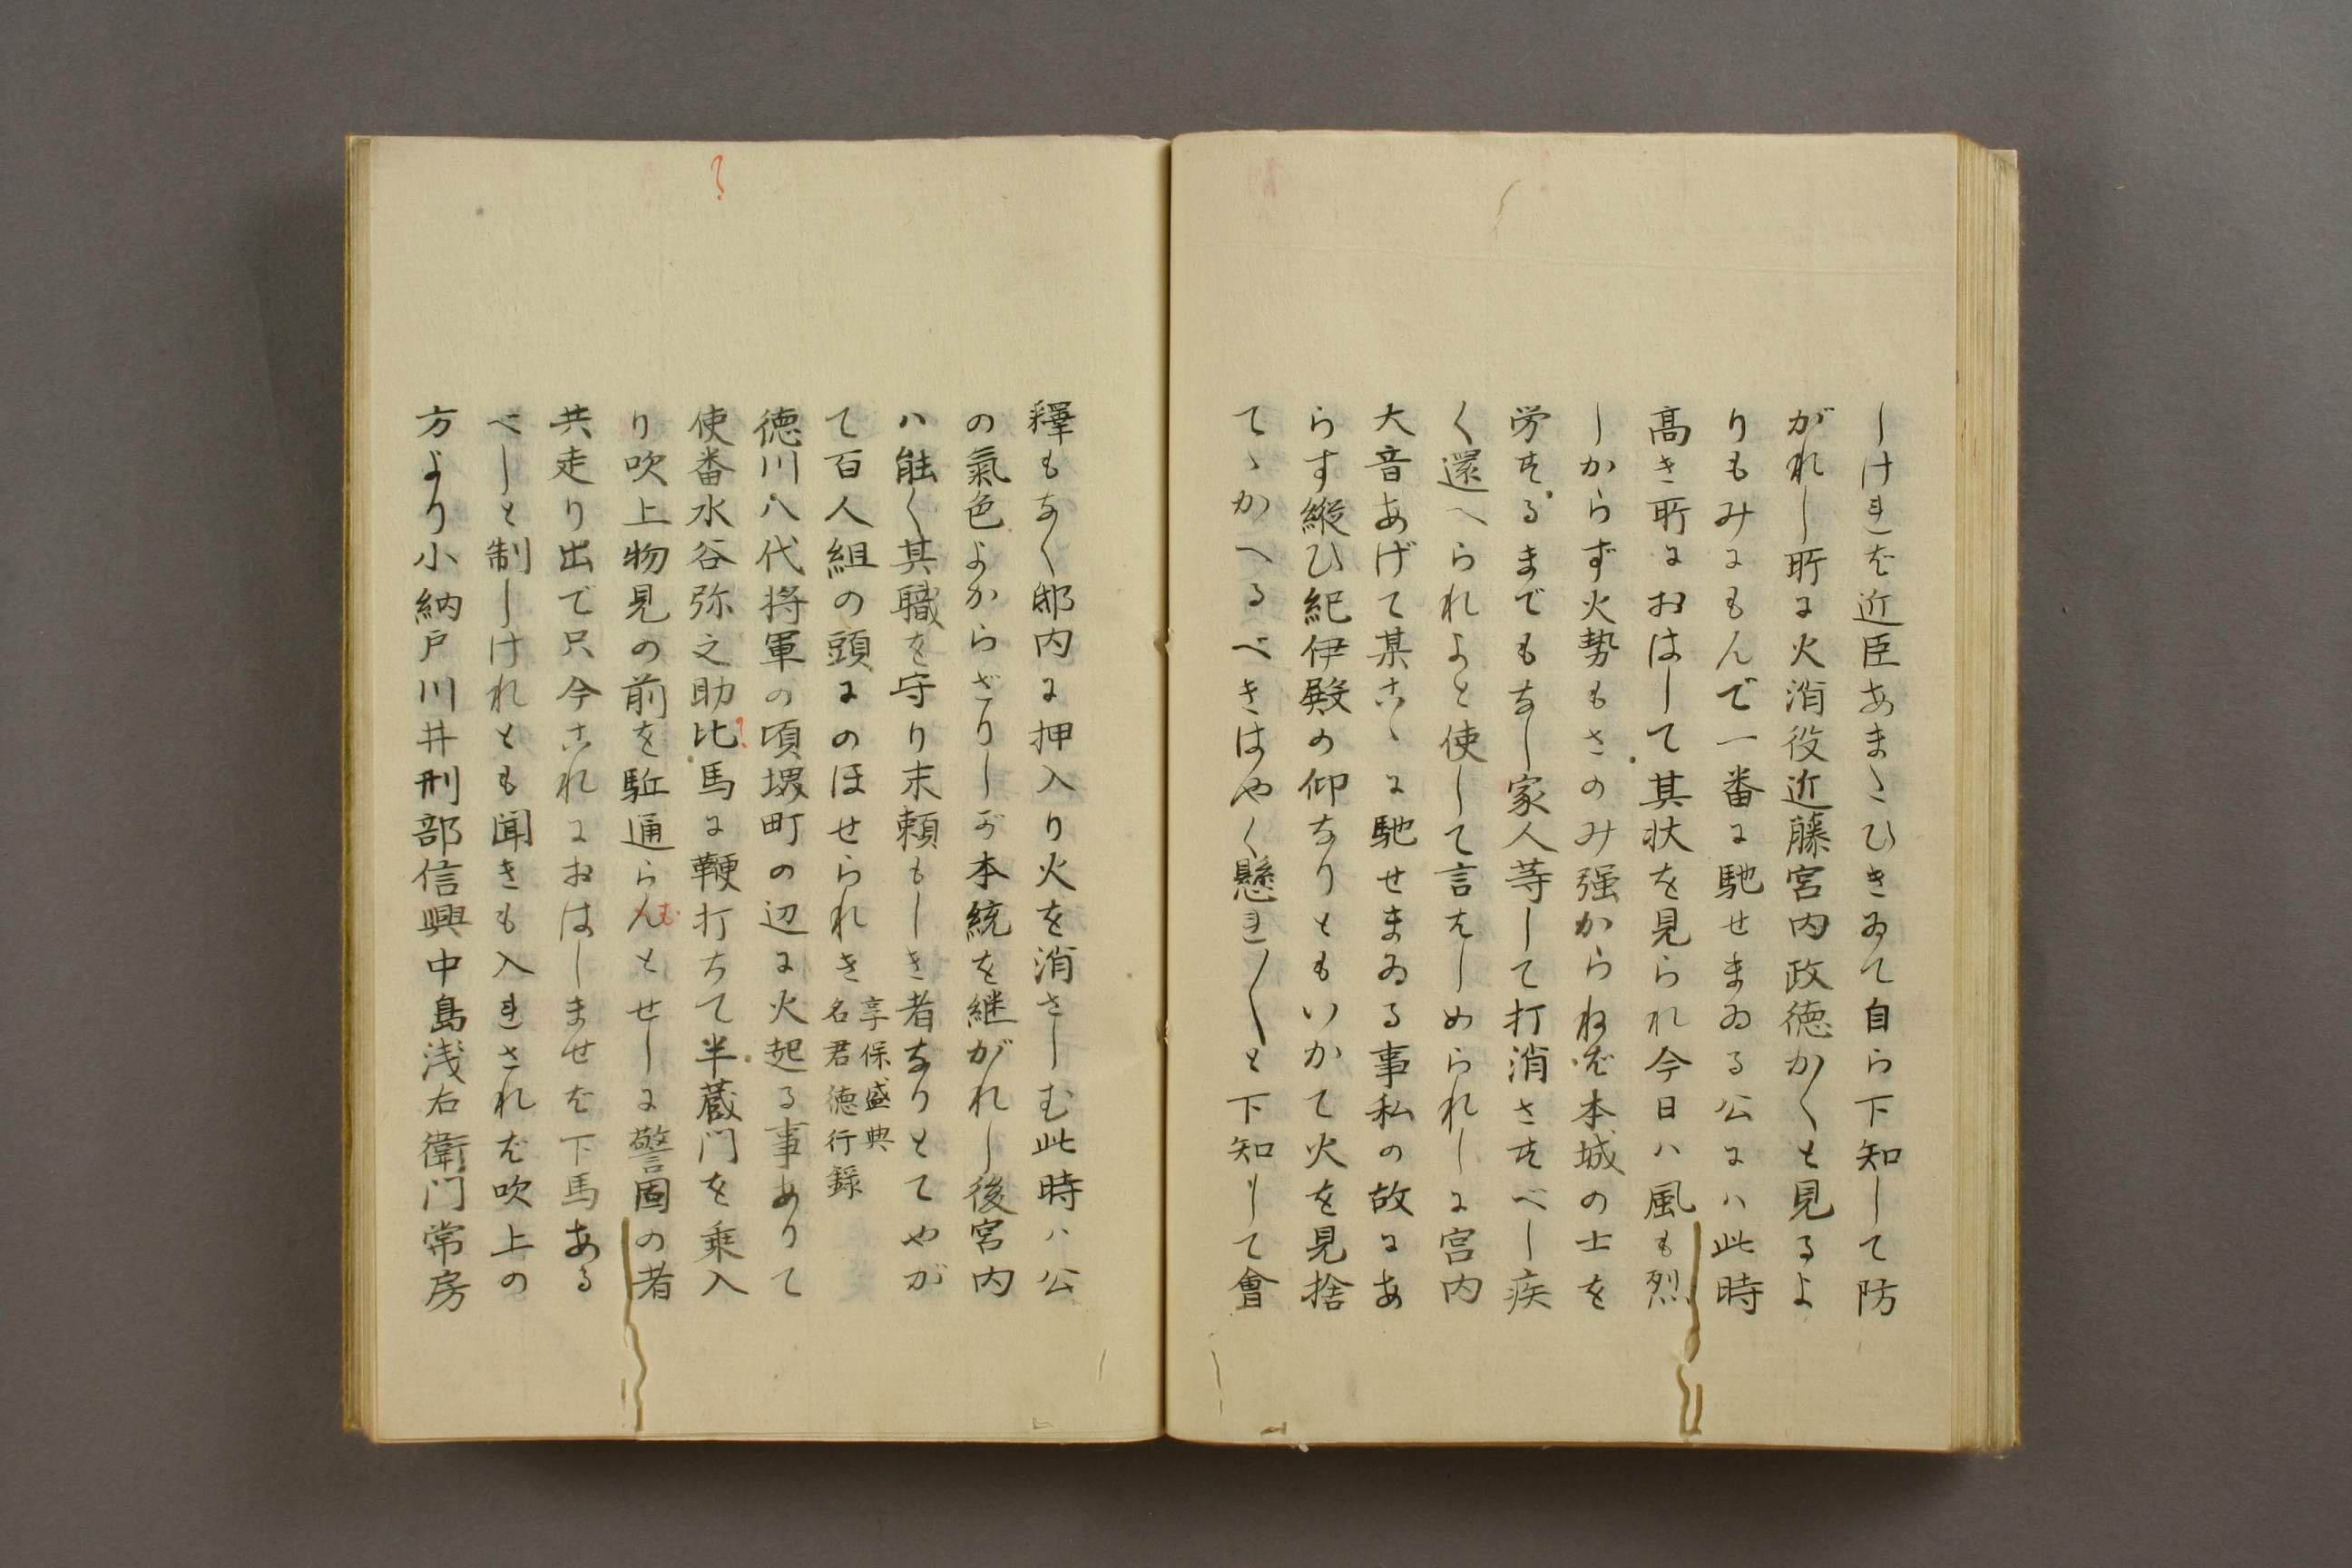 しけれを近臣あまたひきゐて自ら下知して防
がれし所に火消役近藤宮内政徳かくと見るよ
りもみにもんで一番に馳せまゐる公にハ此時
高き所におはして其状を見られ今日ハ風も烈
しからず火勢もさのみ強からねば本城の士を
労するまでもなし家人等して打消さすべし疾
く還へられよと使して言はしめられしに宮内
大音あげて某こゝに馳せまゐる事私の故にあ
らす縦ひ紀伊殿の仰なりともいかて火を見捨
てゝかへるべきはやく懸れ〳〵と下知して會
釋もなく邸内に押入り火を消さしむ此時ハ公
の氣色よからざりしが本統を継がれし後宮内
ハ能く其職を守り末頼もしき者なりとてやが
て百人組の頭にのほせられき享保盛典
名君徳行録
徳川八代将軍の頃堺町の辺に火起る事ありて
使番水谷弥之助比?馬に鞭打ちて半蔵门を乗入
り吹上物見の前を駈通らんむとせしに警固の者
共走り出で只今これにおはしませを下馬ある
べしと制しけれとも聞きも入れされば吹上の
方より小納戸川井刑部信興中島浅右衛门常房
?